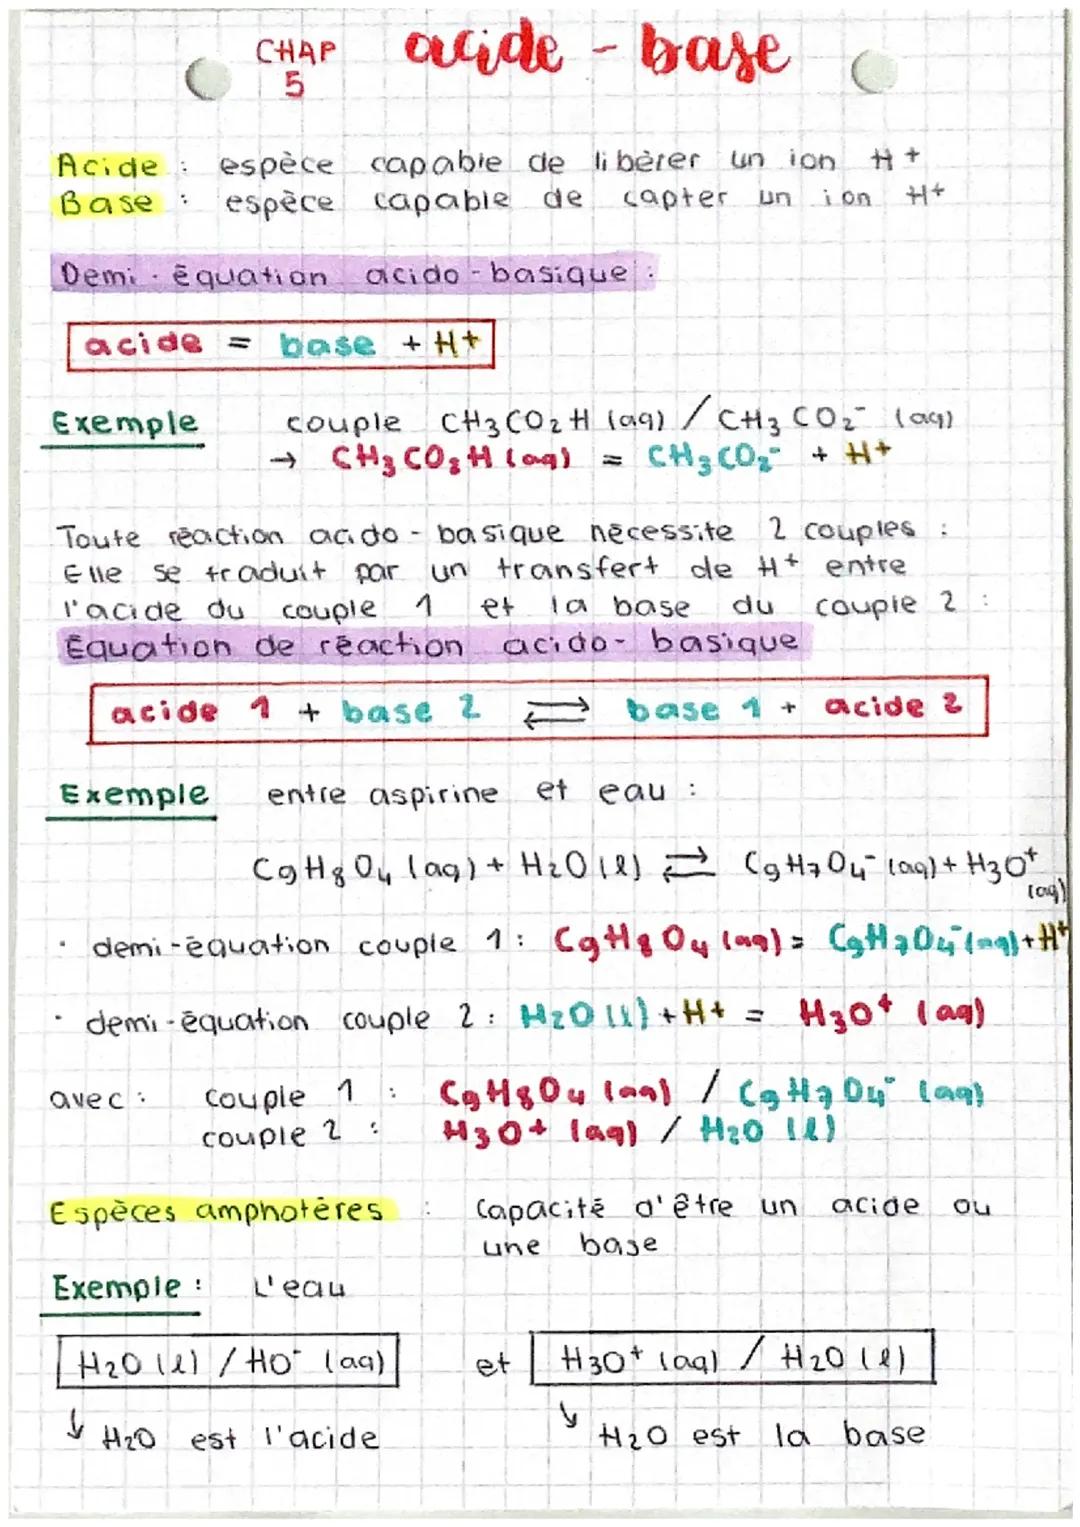 CHAP 5 acide - base
Acide : espèce capable de libérer un ion H+
Base : espèce capable de capter un ion H+
Demi-équation acido-basique :
acide = base + H+
Exemple couple CH3CO2H (aq) / CH3CO2⁻ (aq)
→ CH3CO2H (aq) = CH3CO2⁻ + H+
Toute réaction acido-basique nécessite 2 couples :
Elle se traduit par un transfert de H+ entre
l'acide du couple 1 et la base du couple 2 :
Équation de réaction acido-basique
acide 1 + base 2 ⇌ base 1 + acide 2
Exemple entre aspirine et eau :
C9H8O4 (aq) + H2O (l) ⇌ C9H7O4⁻ (aq) + H3O⁺ (aq)
· demi-équation couple 1 : C9H8O4 (aq) = C9H7O4⁻ (aq) + H⁺
· demi-équation couple 2 : H2O (l) + H+ = H3O⁺ (aq)
avec : couple 1 : C9H8O4 (aq) / C9H7O4⁻ (aq)
couple 2 : H3O+ (aq) / H2O (l)
Espèces amphotères : Capacité d'être un acide ou
une base
Exemple : L'eau
H2O (l) / HO⁻ (aq) et H3O⁺ (aq) / H2O (l)
↓ H2O est l'acide ↓ H2O est la base